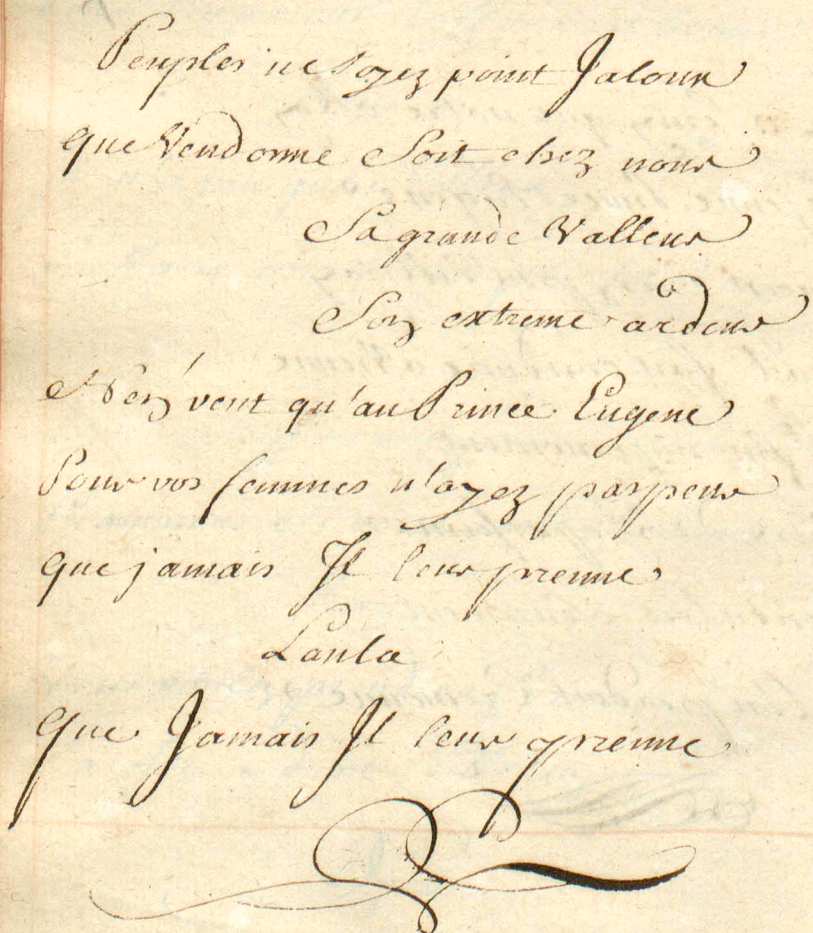 Peuples ne soyez point Jaloux
que Vendome Soit chez nous
Sa grande Valleur
Son extreme ardeur
N'en veut qu'au Prince Eugene
Pour vos femmes n'ayez pas peur
que jamais Il leur prenne
Lanla
que Jamais Il leur prenne